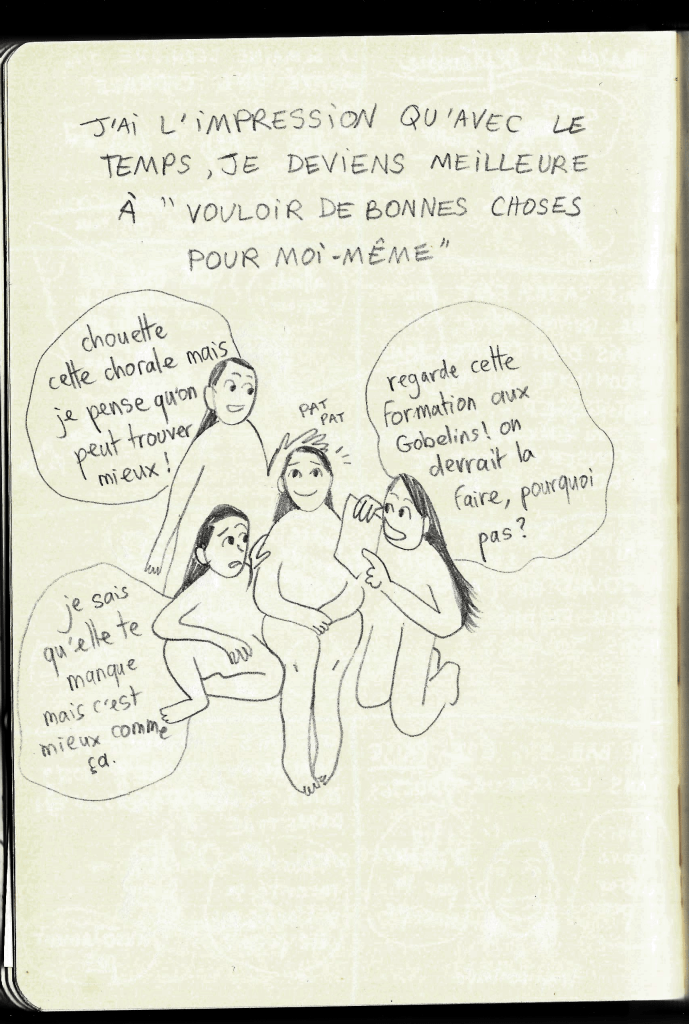 J'AI L'IMPRESSION QU'AVEC LE
TEMPS, JE DEVIENS MEILLEURE
À "VOULOIR DE BONNES CHOSES
POUR MOI-MÊME"
chouette
cette chorale mais
je pense qu'on
peut trouver
mieux !
PAT
PAT
regarde cette
formation aux
Gobelins! on
devrait la
faire, pourquoi
pas?
je sais
qu'elle te
manque
mais c'est
mieux comme
ça.